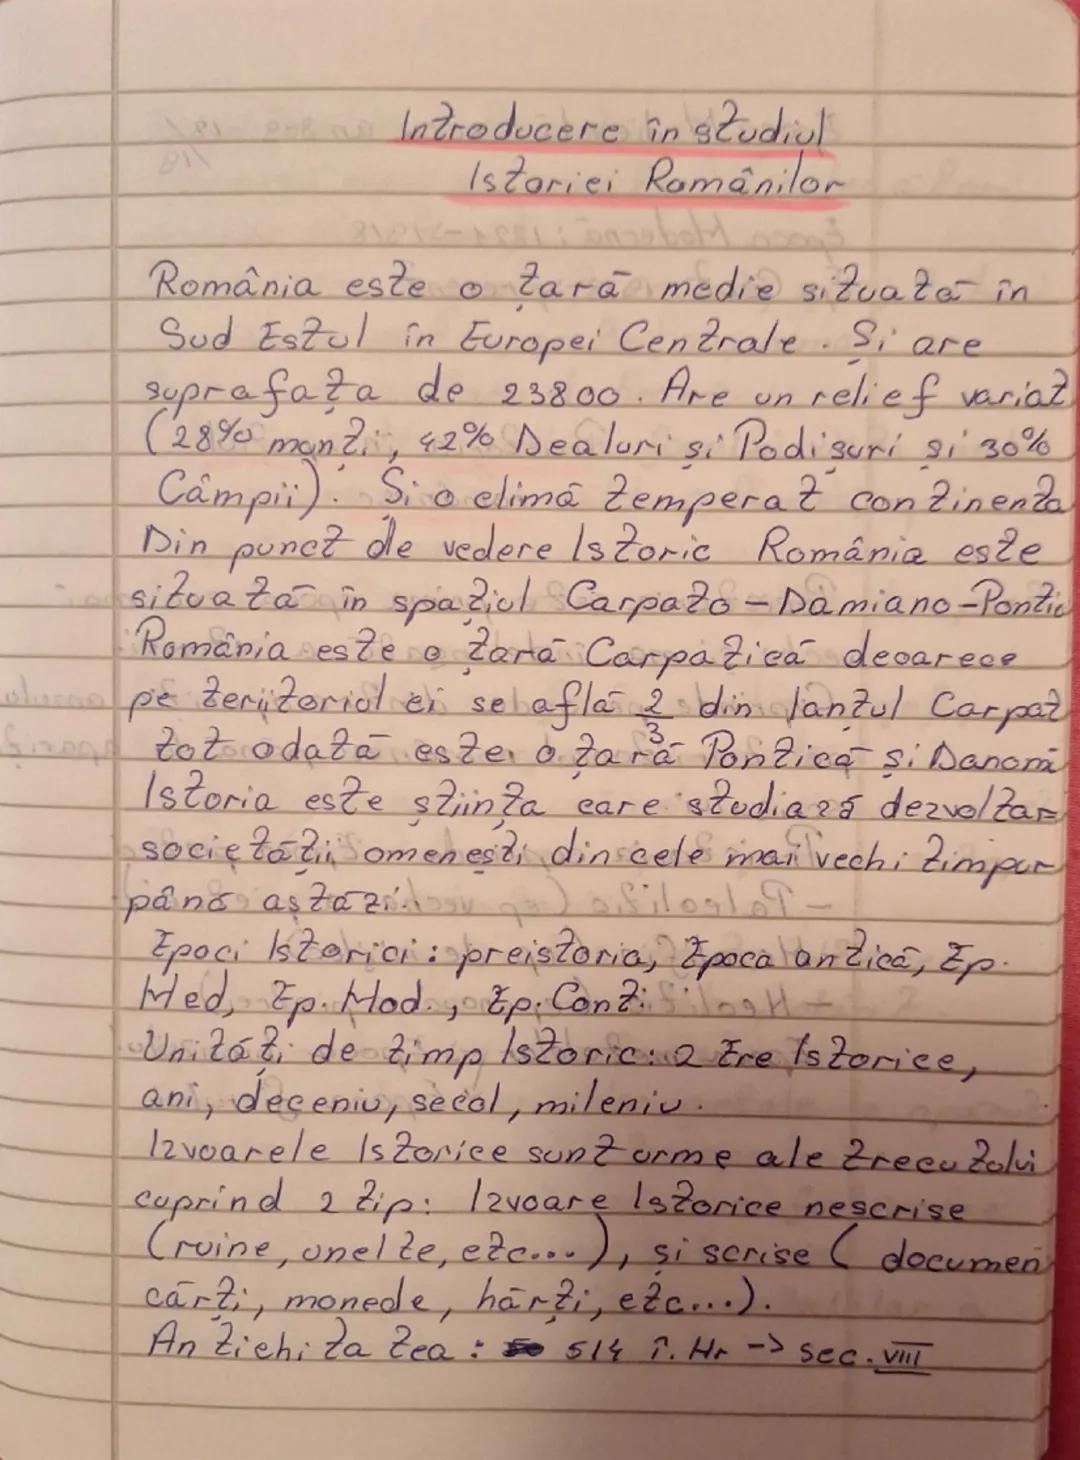 Introducere în studiul
Istoriei Românilor
România este o țară medie situată în
Sud Estul în Europei Centrale. Și are
suprafața de 23800. Are un relief variat
(28% munți, 42% Dealuri și Podișuri și 30%
Câmpii). Și o climă temperat continenta
Din punct de vedere Istoric România este
situată în spațiul Carpato-Damiano-Pontic
România este o țară Carpatică deoarece
pe teritoriul ei se află 2/3 din lanțul Carpat
tot odată este o țară Pontică și Danon
Istoria este știința care studiază dezvoltar
societății omenești din cele mai vechi timpur
până astăzi.
Epoci Istorici: preistoria, Epoca antică, Ep.
Med, Ep. Mod., Ep. Cont.
Unități de timp Istoric: 2 Ere Istorice,
ani, deceniu, secol, mileniu.
Izvoarele Istorice sunt urme ale trecutului
cuprind 2 tip: Izvoare Istorice nescrise
(ruine, unelte, etc...), și scrise ( documen
cărți, monede, hărți, etc...).
Antichitatea: 514 î. Hr -> sec. VIII